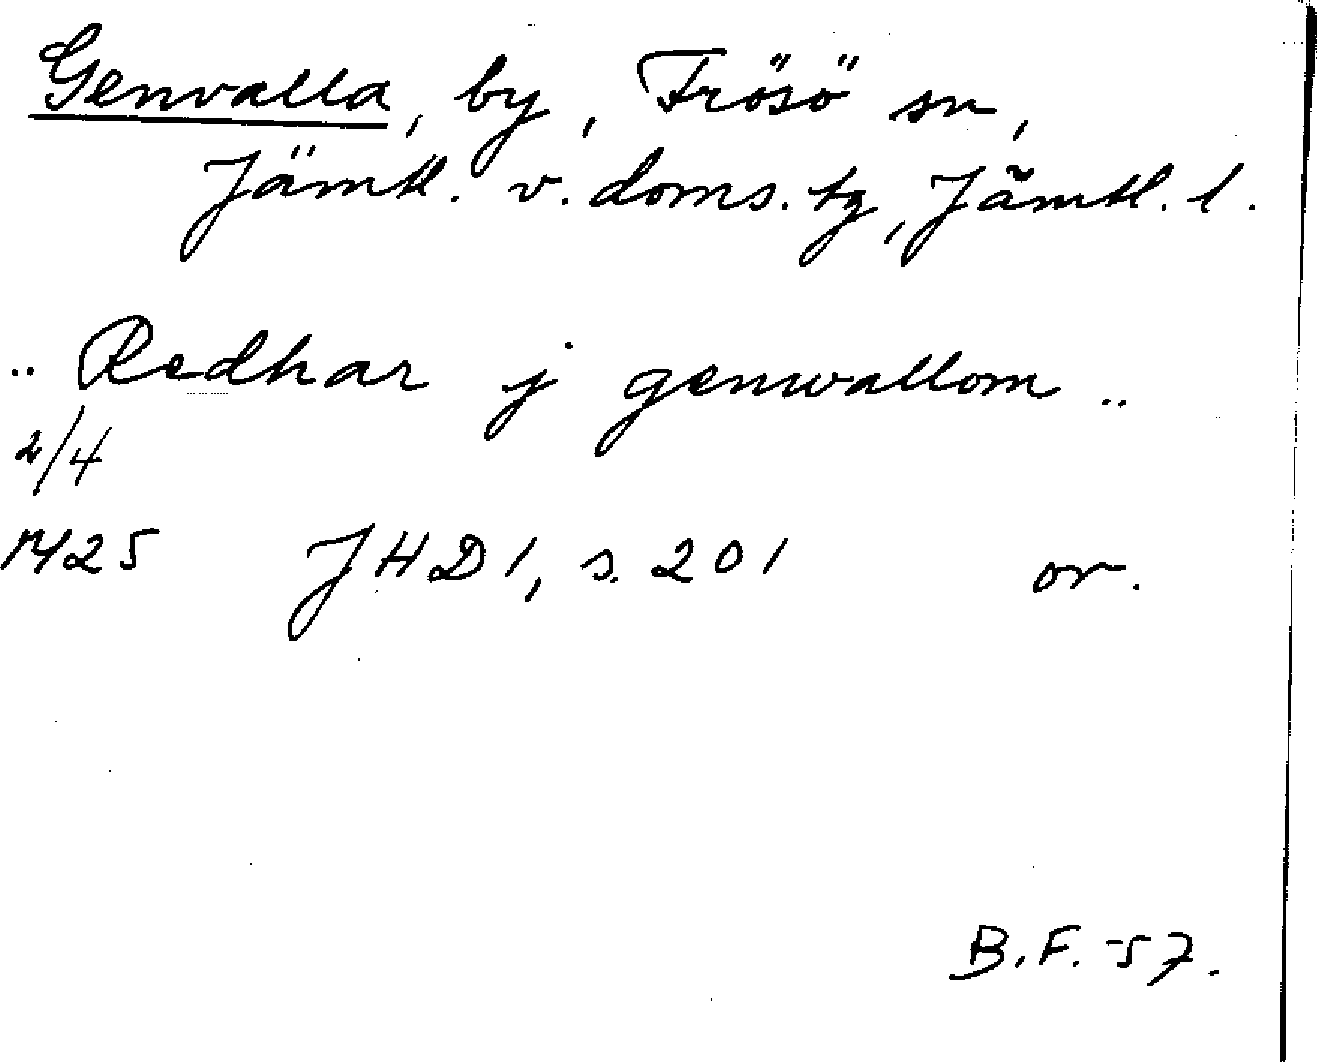 Genvalla, by, Frösö sn,
Jämtl. v. doms. tg, Jämtl. l.
.. Redhar j genwallom ..
2/4
1425 JHD 1, s. 201 or.
B.F. -57.